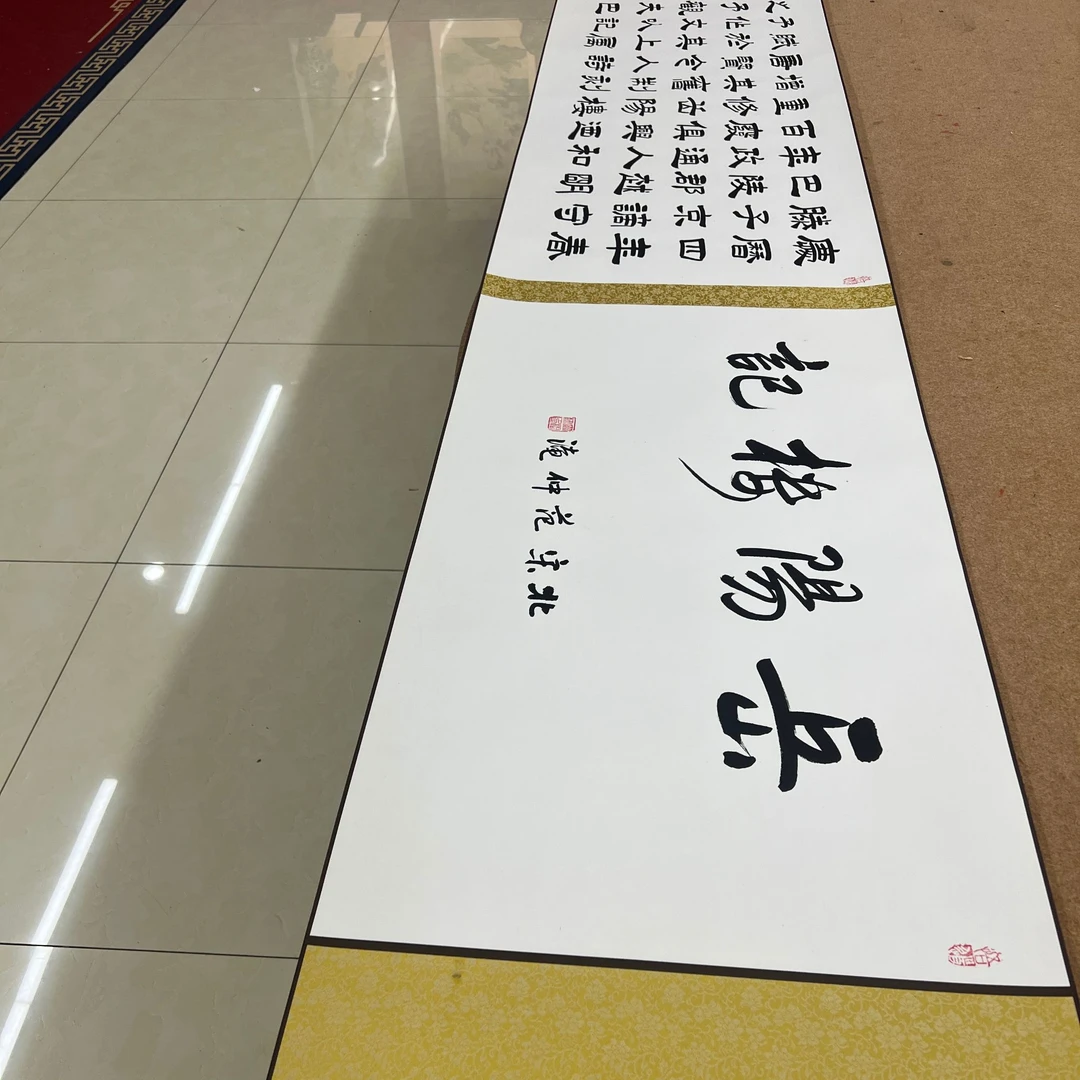 岳陽樓記
北宋范仲淹
慶曆四年春
滕子京謫守
巴陵郡越明
年政通人和
百廢俱興迺
重修岳陽樓
增其舊制刻
唐賢今人詩
賦於其上屬
予作文以記